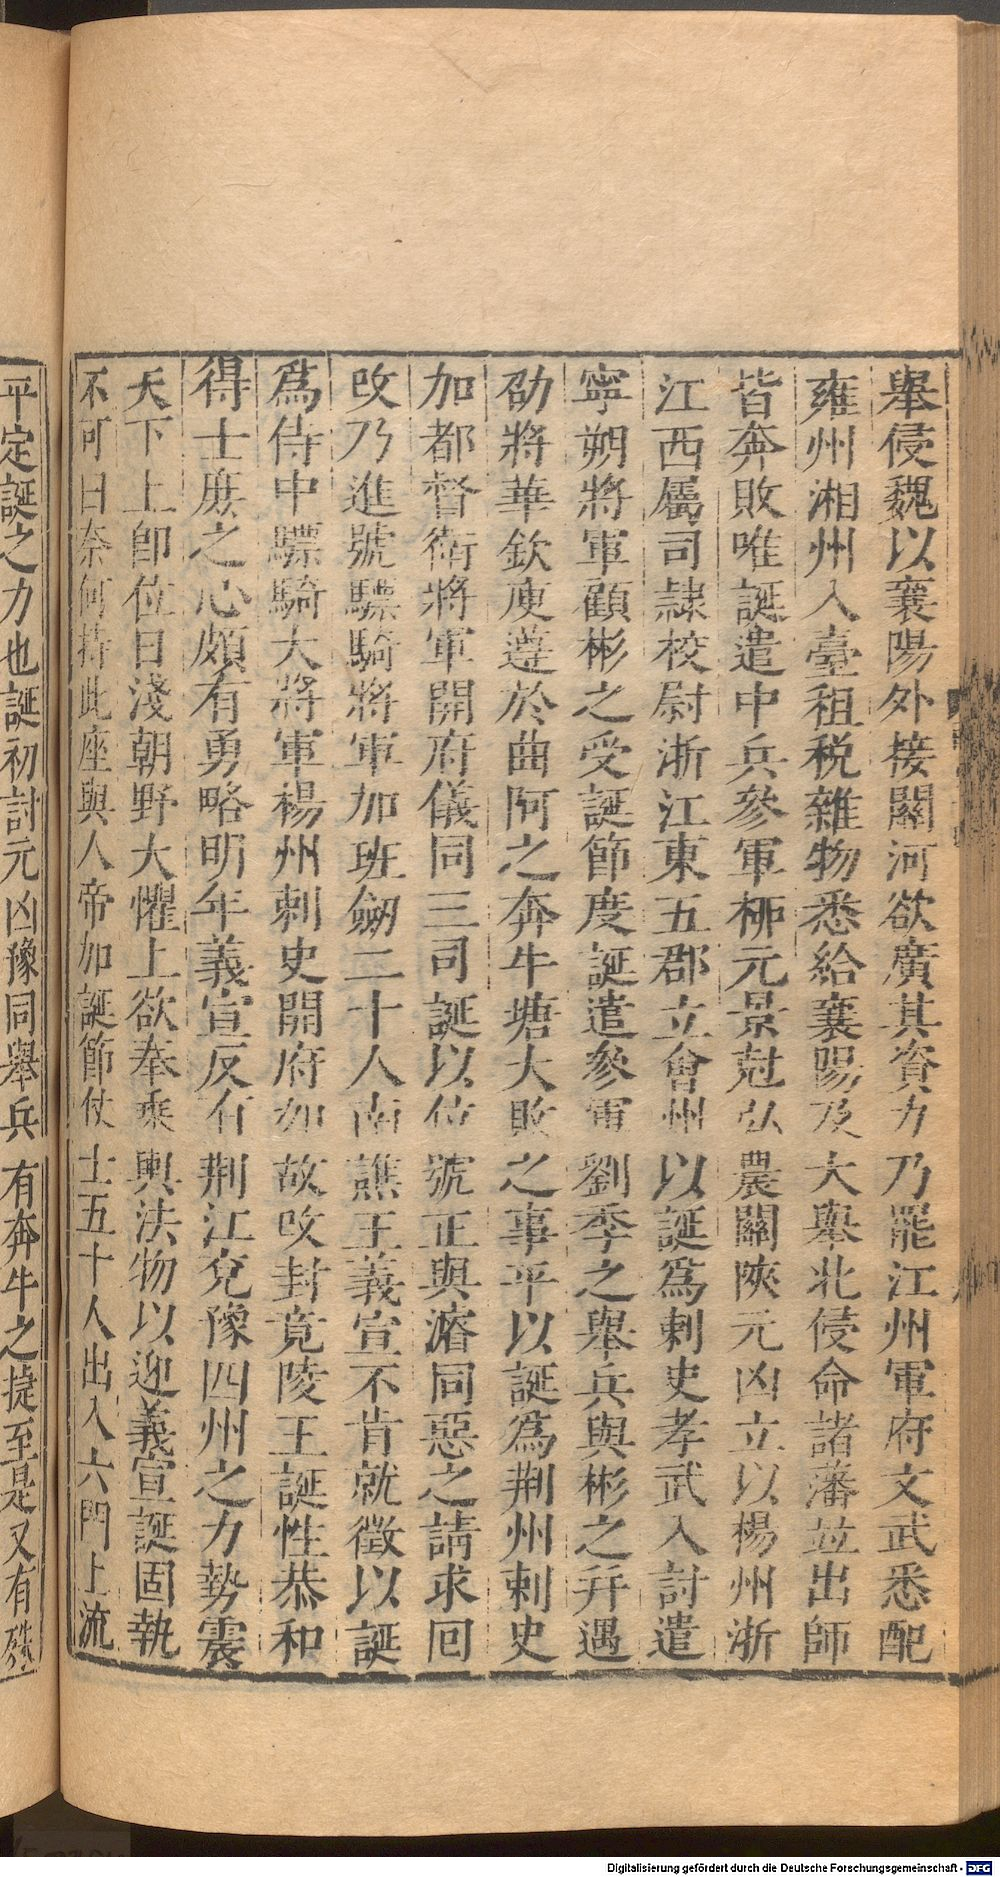 舉侵魏以襄陽外接關河欲廣其資力乃罷江州軍府文武悉配
雍州湘州入臺租稅雜物悉給襄陽及大舉北侵命諸藩並出師
皆奔敗唯誕遣中兵參軍栁元景尅弘農關陝元凶立以楊州浙
江西屬司隸校尉浙江東五郡立會州以誕爲刺史孝武入討遣
寧朔將軍顧彬之受誕節度誕遣參軍劉季之舉兵與彬之幷遇
劭將華欽庾遵於曲阿之奔牛塘大敗之事平以誕爲荆州刺史
加都督衛將軍開府儀同三司誕以位號正與濬同惡之請求回
攺乃進號驃騎將軍加班劒二十人南譙王義宣不肯就徵以誕
爲侍中驃騎大將軍楊州刺史開府如故攺封竟陵王誕性恭和
得士庶之心頗有勇略明年義宣反有荆江兗豫四州之力勢震
天下上卽位日淺朝野大懼上欲奉乘輿法物以迎義宣誕固執
不可曰奈何持此座與人帝加誕節仗士五十人出入六門上流
平定誕之力也誕初討元凶豫同舉兵有奔牛之捷至是又有
Digitalisierung gefördert durch die Deutsche Forschungsgemeinschaft - DFG